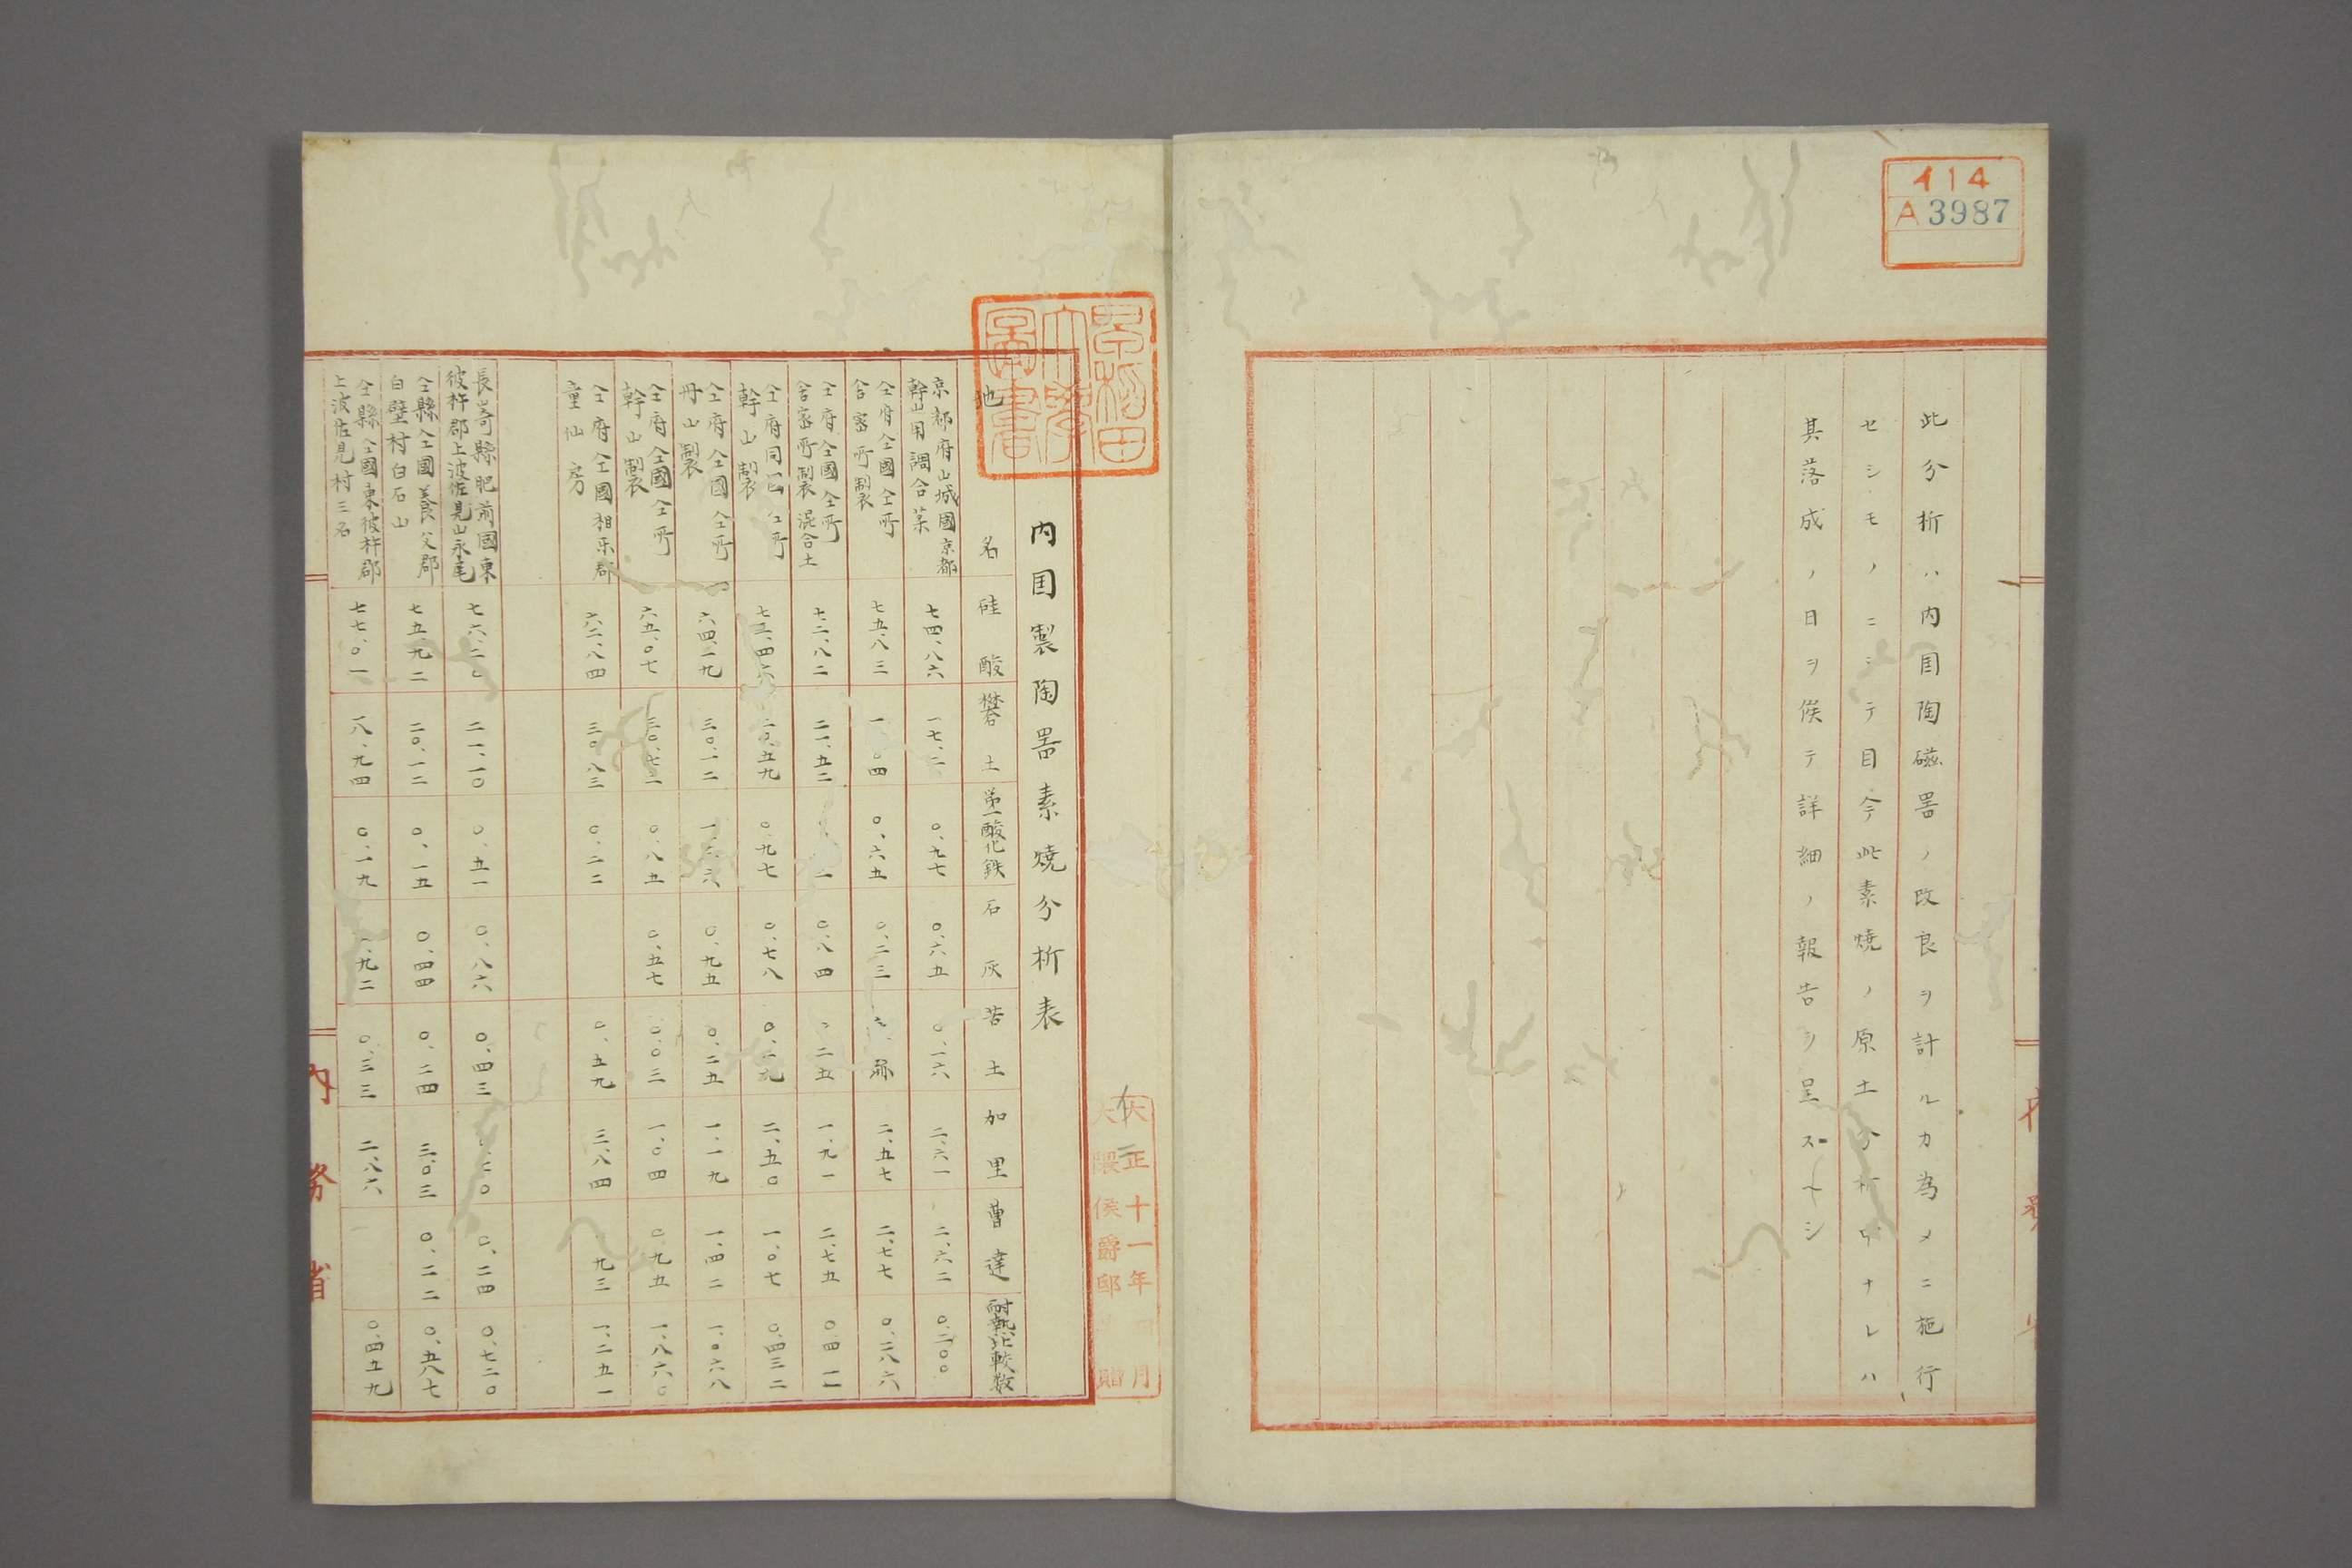 イ14
A3987
此分析ハ内国陶磁器ノ改良ヲ計ルカ為メニ施行
セシモノニシテ目今此素焼ノ原土分析中ナレハ
其落成ノ日ヲ俟テ詳細ノ報告ヲ呈スヘシ
早稲田大学図書
大正十一年 月
大隈侯爵邸 贈
内国製陶器素焼分析表
地名 硅酸 礬土 第一酸化鉄 石灰 苦土 加里 曹達 耐熱比較数
京都府山城國京都
幹山用調合菜 七四、八六 一七、二 〇、九七 〇、六五 〇、一六 二、六一 二、六二 〇、二〇〇
仝府仝國仝所
舎密所製 七五、八三 〇四 〇、六五 〇、二三 二、五七 二、七七 〇、二八六
仝府仝國仝所
舎密所製混合土 七二、八二 二一、五二 〇、八四 二五 一、九一 二、七五 〇、四一一
仝府同 仝所
幹山製 七三、四六 二〇、五九 〇、九七 〇、七八 〇、二九 二、五〇 一、〇七 〇、四三二
仝府仝國仝所
丹山製 六四、二九 三〇、一二 〇、九五 〇、二五 一、一九 一、四二 一、〇六八
仝府仝國仝所
幹山製 六五、〇七 三〇、七一 〇、八五 〇、五七 〇、〇三 一、〇四 〇、九五 一、八六〇
仝府仝國相楽郡
童仙房 六二、八四 三〇、八三 〇、二二 〇、五九 三、八四 九三 一、二五一
長崎縣肥前國東
彼杵郡上波佐見山永尾 七六、二〇 二一、一〇 〇、五一 〇、八六 〇、四三 二〇 〇、二四 〇、七二〇
仝縣仝國養父郡
白壁村白石山 七五、九二 二〇、一二 〇、一五 〇、四四 〇、二四 三、〇三 〇、二二 〇、五八七
仝縣仝國東彼杵郡
上波佐見村三名 七七、〇一 一八、九四 〇、一九 九二 〇、三三 二、八六 〇、四五九
内務省